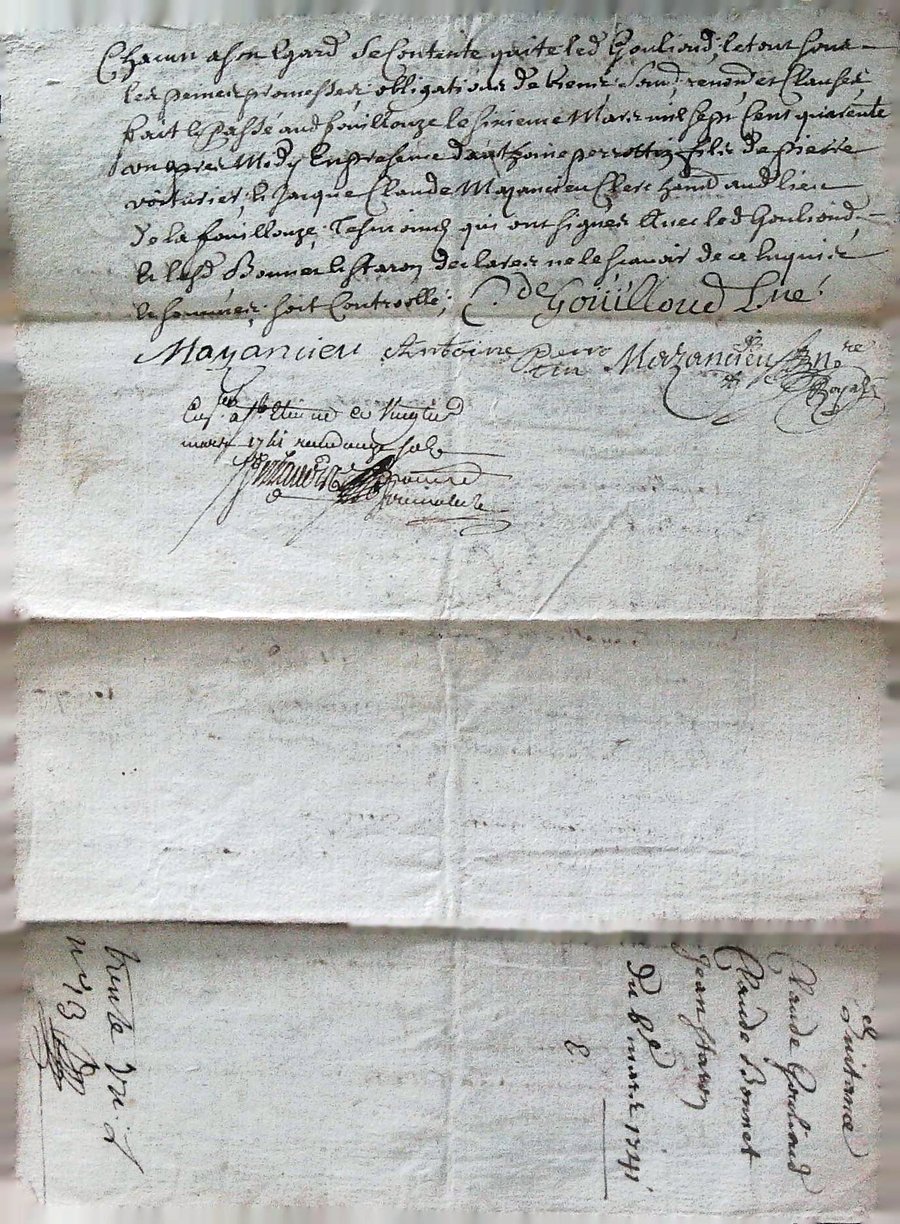 Chacun a son Egard Se Contente quite led Gouliond, le tout sous
les peines promesses, obligations de biens, Soud, renond, et Clauses,
fait & Passé aud fouillouze le sixieme Mars mil sept Cent quarente
un apres Midy En presence danthoine perrottin fils de Pierre
voiturier, & Jacque Claude Mazancieu Clerc aud lieu
de la fouillouze, Tesmoins qui ont signes Avec led Gouliond
& lesd Bonnet & Staron declares ne le scavoir de ce Enquis
soit Controllé; C. de Goüilloud
Mayancieu Antoine perro
tin Mazancieu nre
Royal
a St Etienne ce vingt
mars 1741 recu douze sols
Quitance
Claude Gouliond
Claude Bonnet
Jean staron
du 6e mars 1741
trente un
n 13